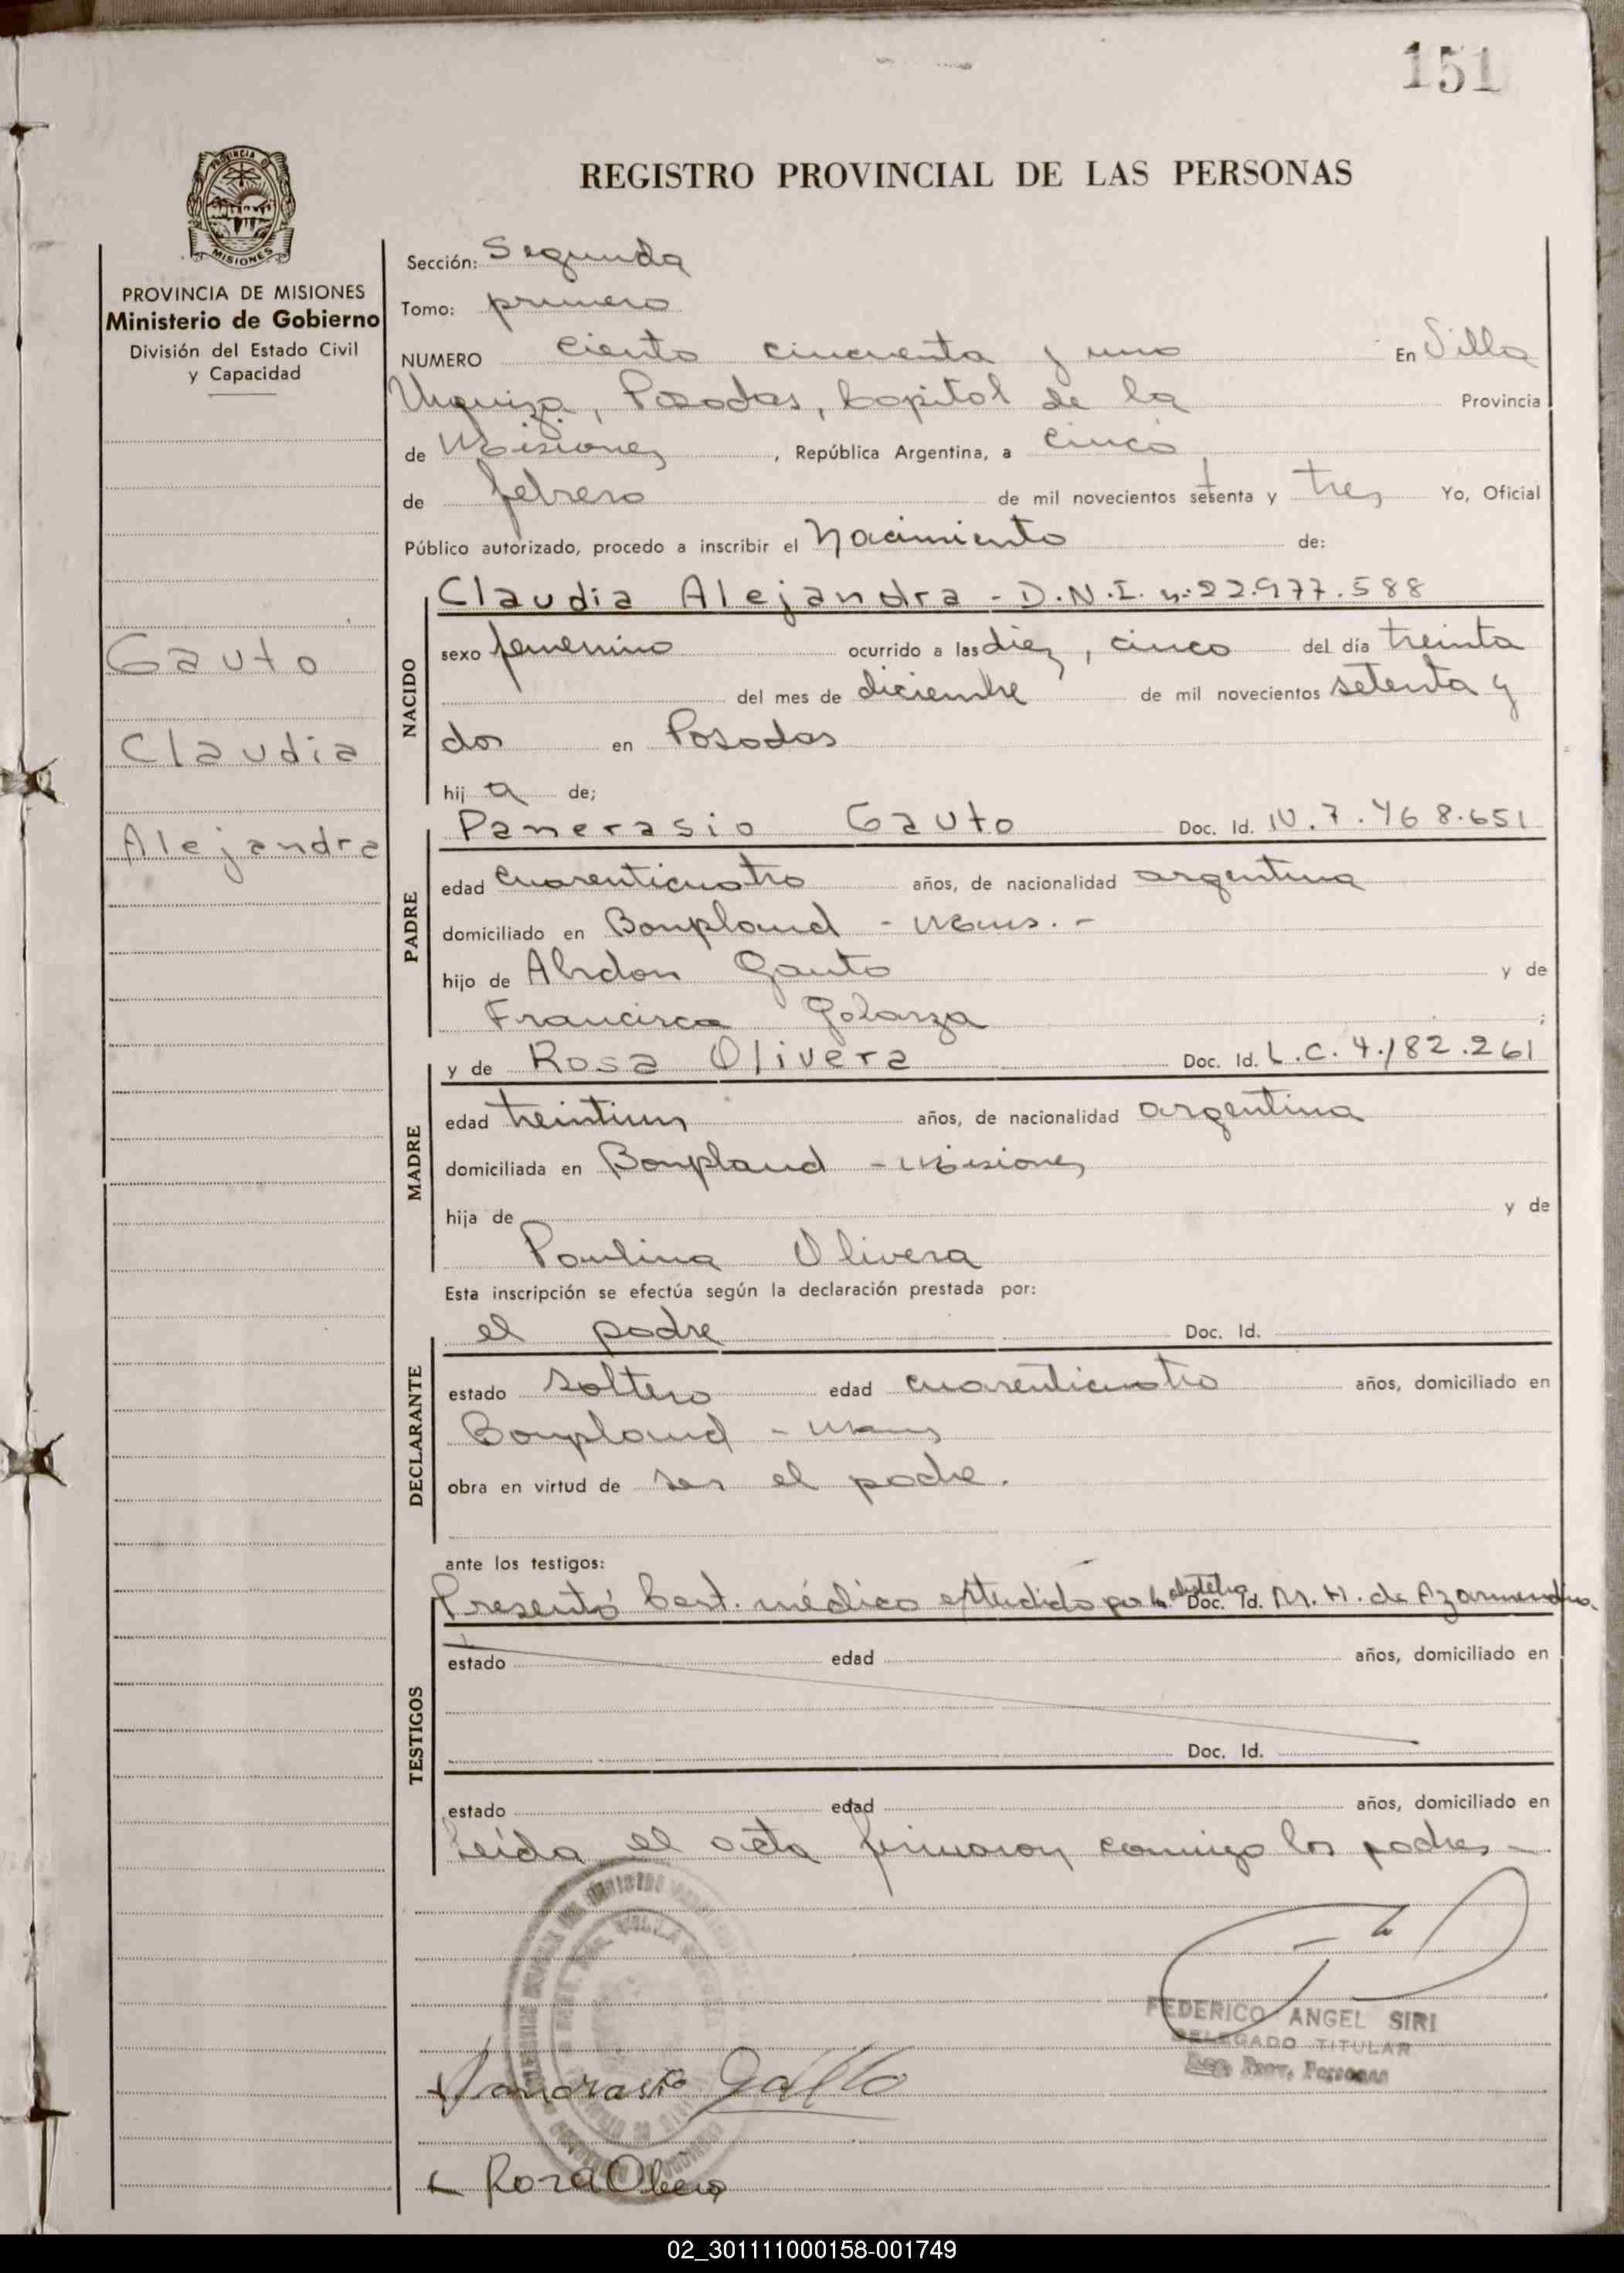 151
PROVINCIA DE
MISIONES
REGISTRO PROVINCIAL DE LAS PERSONAS
PROVINCIA DE MISIONES
Ministerio de Gobierno
División del Estado Civil
y Capacidad
Gauto
Claudia
Alejandra
Sección: Segunda
Tomo: primero
NUMERO ciento cincuenta y uno En Villa
Urquiza, Posadas, Capital de la Provincia
de Misiones, República Argentina, a cinco
de febrero de mil novecientos setenta y tres Yo, Oficial
Público autorizado, procedo a inscribir el Nacimiento de:
NACIDO
Claudia Alejandra - D.N.I. n: 22.977.588
sexo femenino ocurrido a las diez, cinco del día treinta
del mes de diciembre de mil novecientos setenta y
dos en Posadas
hij a de;
PADRE
Panerasio Gauto Doc. Id. M. 7.468.651
edad cuarenticuatro años, de nacionalidad argentina
domiciliado en Bonpland - Mnes. -
hijo de Abdon Gauto y de
Francisca Galarza ;
MADRE
y de Rosa Olivera Doc. Id. L.C. 4.182.261
edad treintiun años, de nacionalidad argentina
domiciliada en Bonpland - Misiones
hija de y de
Paulina Olivera
Esta inscripción se efectúa según la declaración prestada por:
DECLARANTE
el padre Doc. Id.
estado soltero edad cuarenticuatro años, domiciliado en
Bonpland - Mnes
obra en virtud de ser el padre.
ante los testigos:
TESTIGOS
Presentó Cert. médico extendido por la obstetra Doc. Id. M. H. de Azarmendia.
estado edad años, domiciliado en
Doc. Id.
estado edad años, domiciliado en
Leída el acta firmaron conmigo los padres -
FEDERICO ANGEL SIRI
DELEGADO TITULAR
Reg. Prov. Personas
Panerasio Gauto
Rosa Olivera
02_301111000158-001749